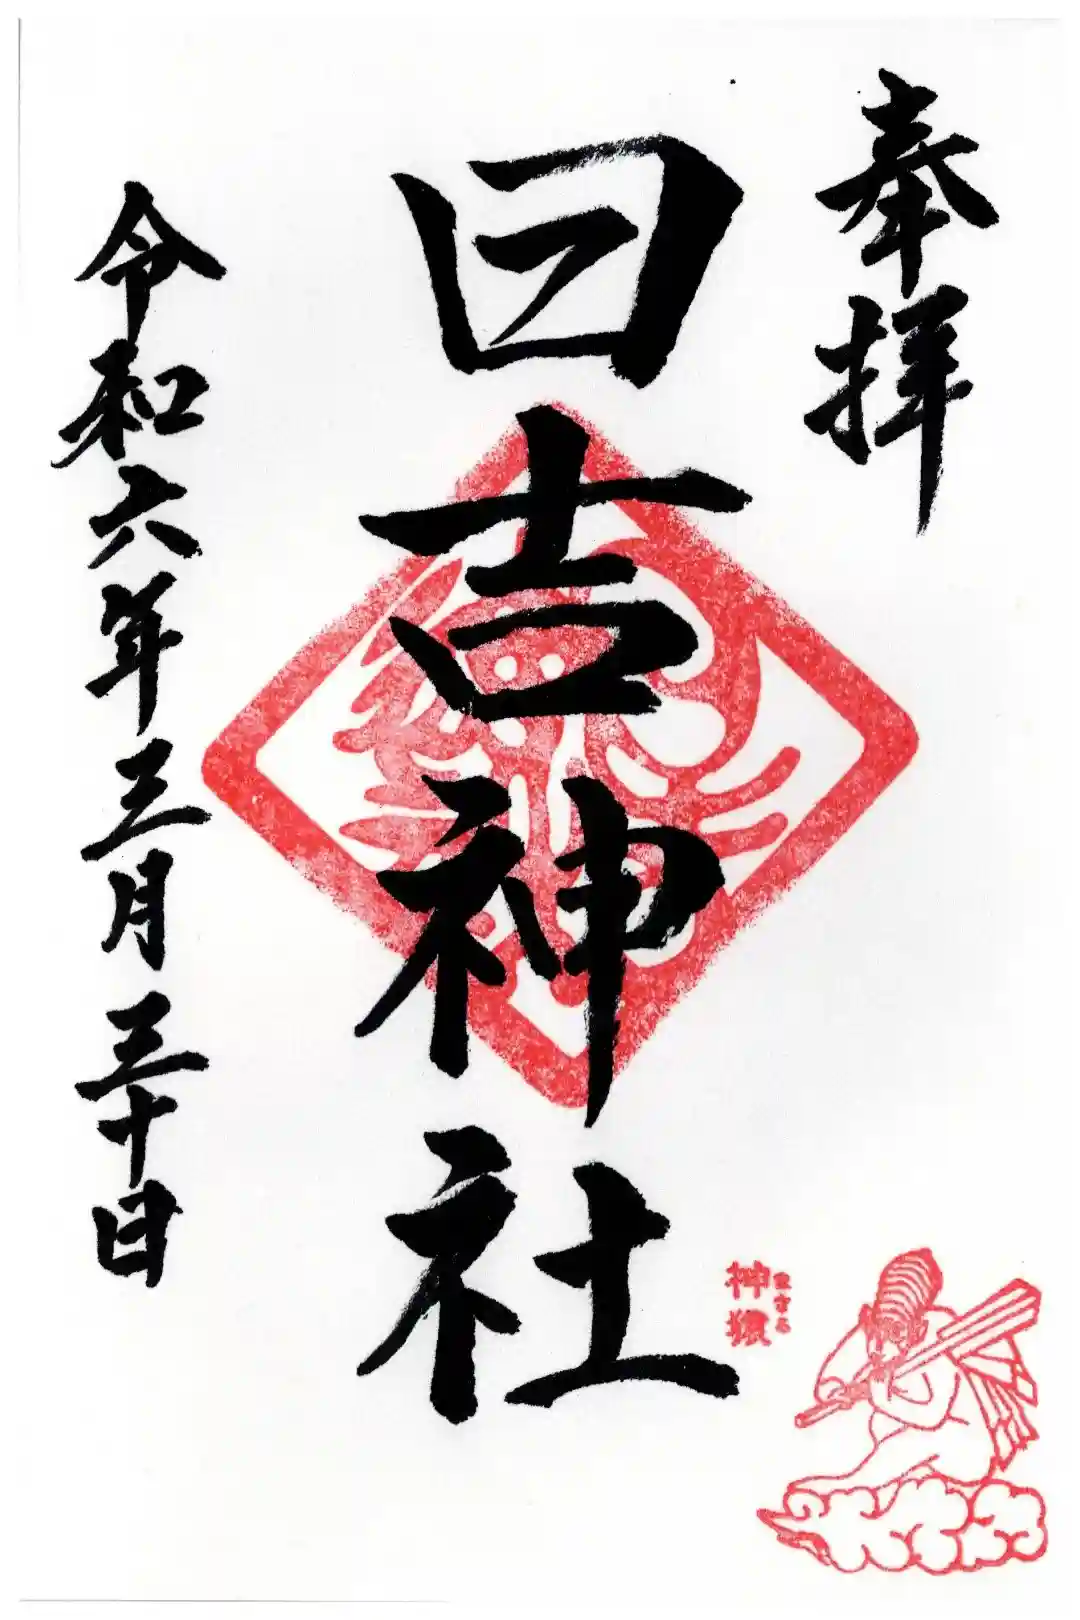 奉拝
日吉神社
神猿
まさる
令和六年三月三十日